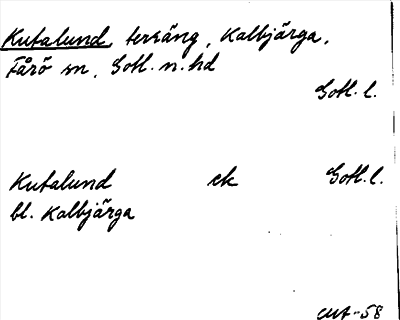 Kutalund, teräng, Kalbjärga,
Fårö sn, Gotl. n. hd
Gotl. l.
Kutalund ek Gotl. l.
bl. Kalbjärga
-58